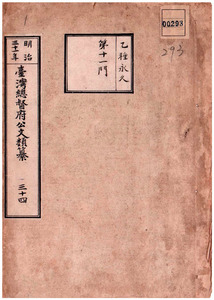 00293
293
乙種永久
第十一門
明治
三十一年
臺灣總督府公文類纂
三十四